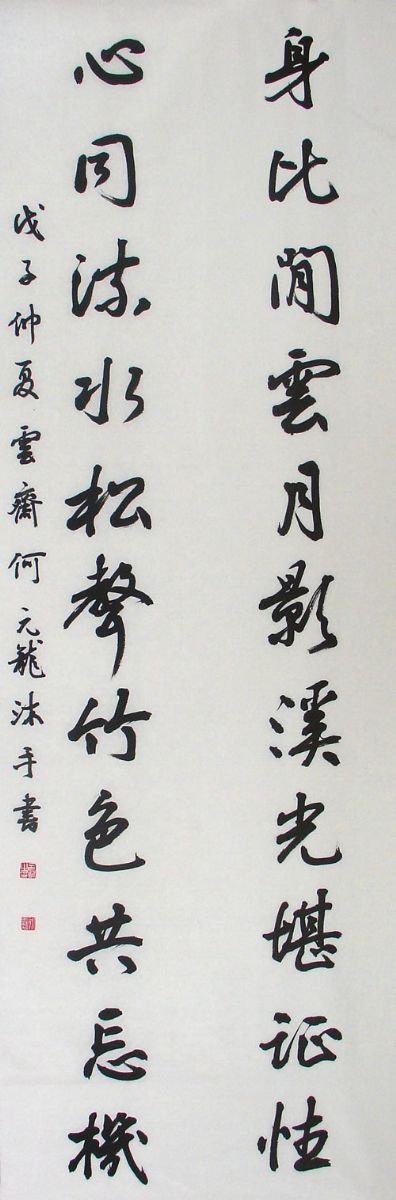 身比閒雲月影溪光堪证性
心同流水松聲竹色共忘機
戊子仲夏雲齋何元龍沐手書